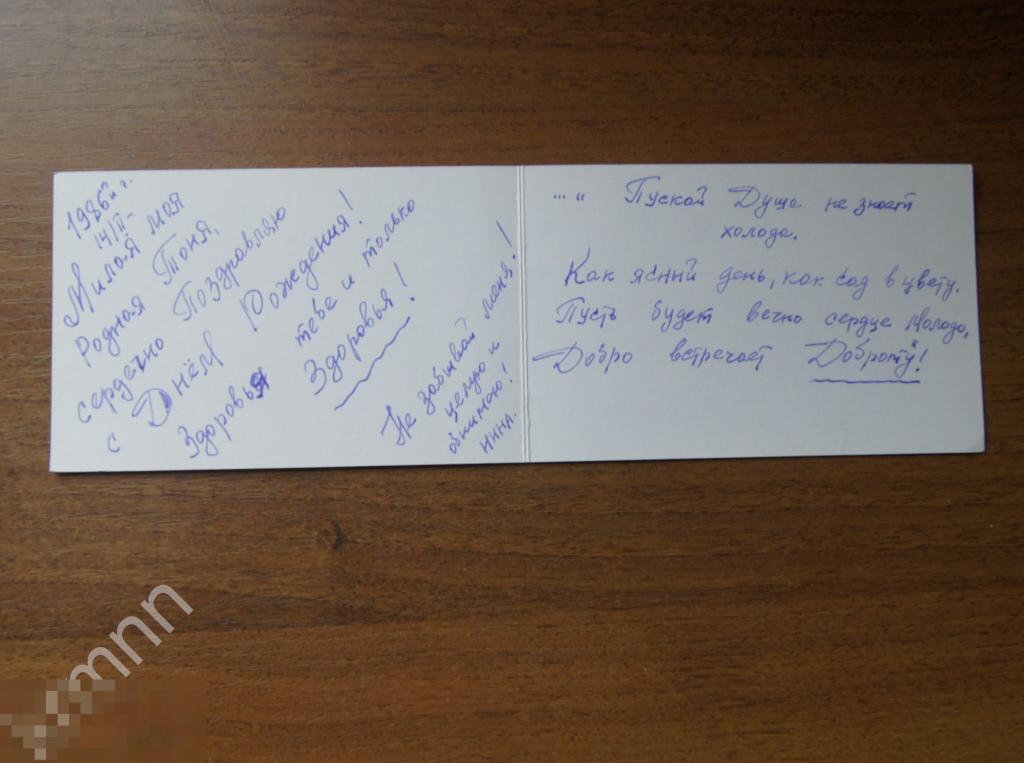 1986 г.
14/II-
Милая моя
Родная Тоня,
сердечно Поздравляю
с Днём Рождения!
Здоровья тебе и только
Здоровья!
Не забывай меня!
целую и
обнимаю!
Нина.
..." Пускай Душа не знает
холода.
Как ясный день, как сад в цвету.
Пусть будет вечно сердце молодо,
Добро встречает Добротý!
mnn